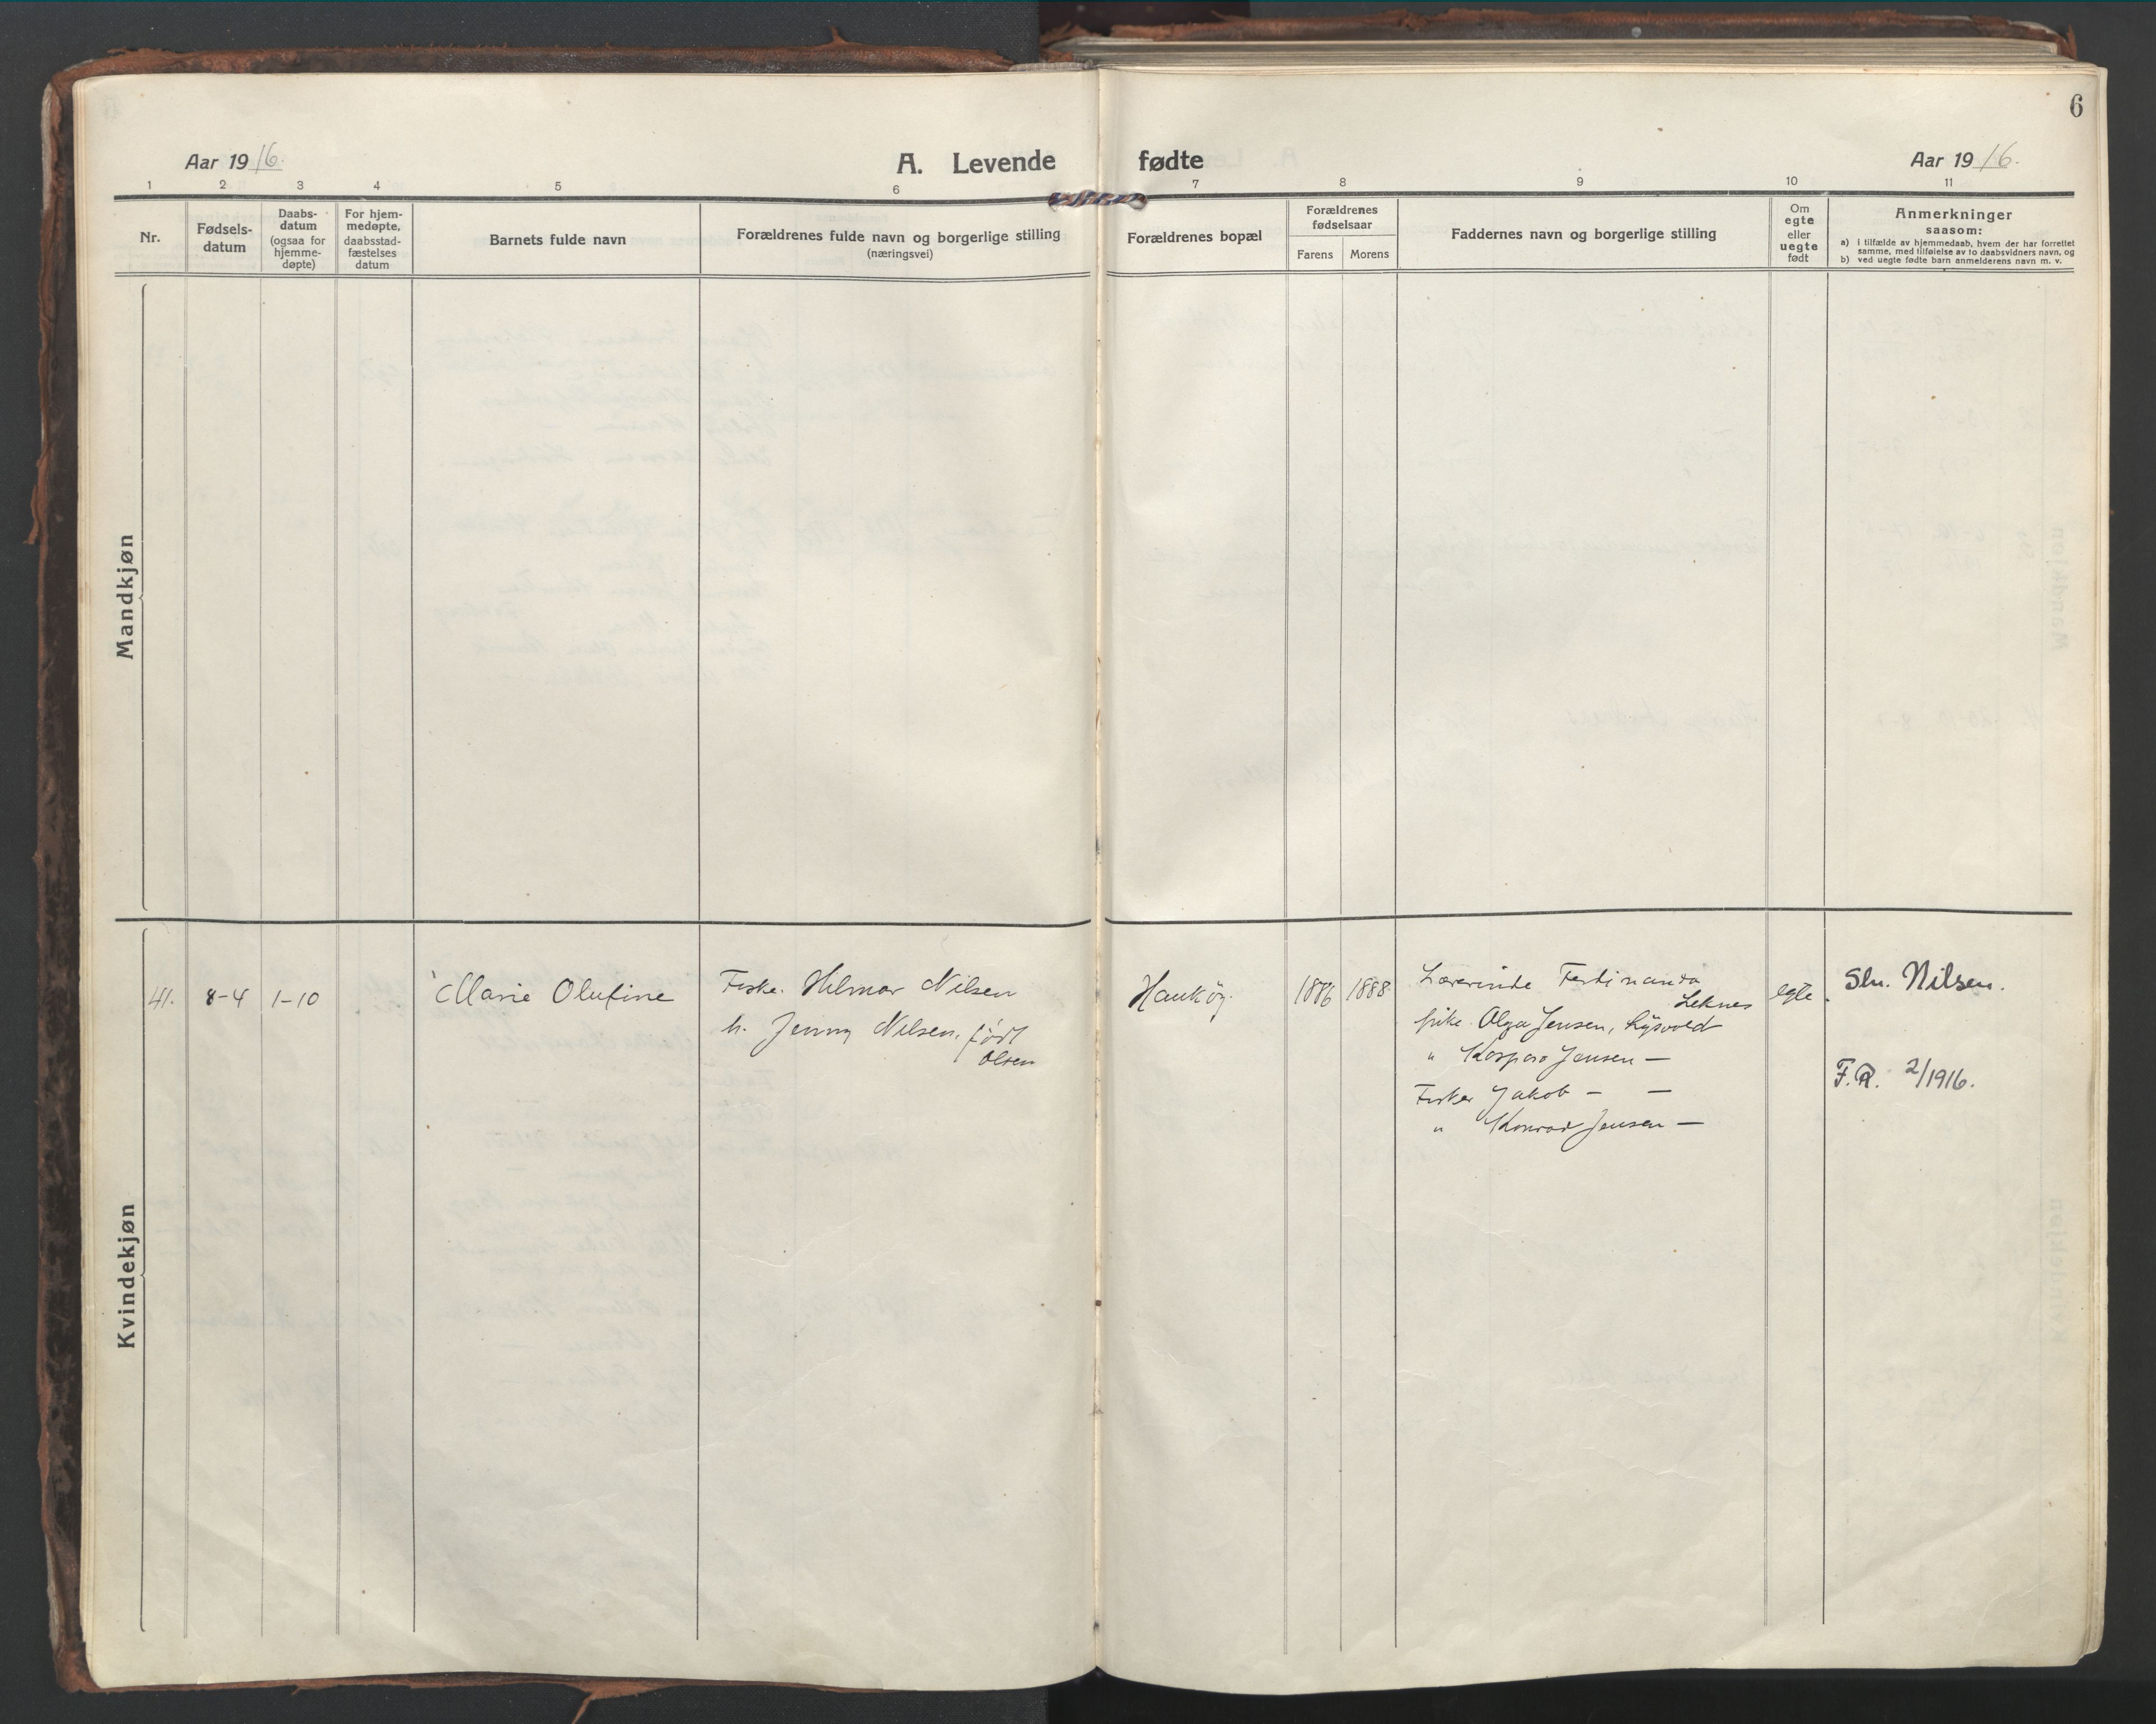 6
Aar 1916.
A. Levende fødte
Aar 1916.
1 2 3 4 5 6 7 8 9 10 11
Nr.
Fødsels-
datum
Daabs-
datum
(ogsaa for
hjemme-
døpte)
For hjem-
medøpte,
daabsstad-
fæstelses
datum
Barnets fulde navn
Forældrenes fulde navn og borgerlige stilling
(næringsvei)
Forældrenes bopæl
Forældrenes
fødselsaar
Farens Morens
Faddernes navn og borgerlige stilling
Om
egte
eller
uegte
født
Anmerkninger
saasom:
a) i tilfælde av hjemmedaab, hvem der har forrettet
samme, med tilføielse av to daabsvidners navn, og
b) ved uegte fødte barn anmelderens navn m. v.
Mandkjøn
Kvindekjøn
41. 8-4 1-10 Marie Olufine
Fisker Hilmar Nilsen
h. Jenny Nilsen, født
Olsen
Haukøy.
1886 1888
Lærerinde Ferdinanda
Leknes
pike Olga Jensen, Lysvold
" Kaspara Jensen —
Fisker Jakob — —
" Konrad Jensen —
egte.
Sln. Nilsen.
F.R. 2/1916.